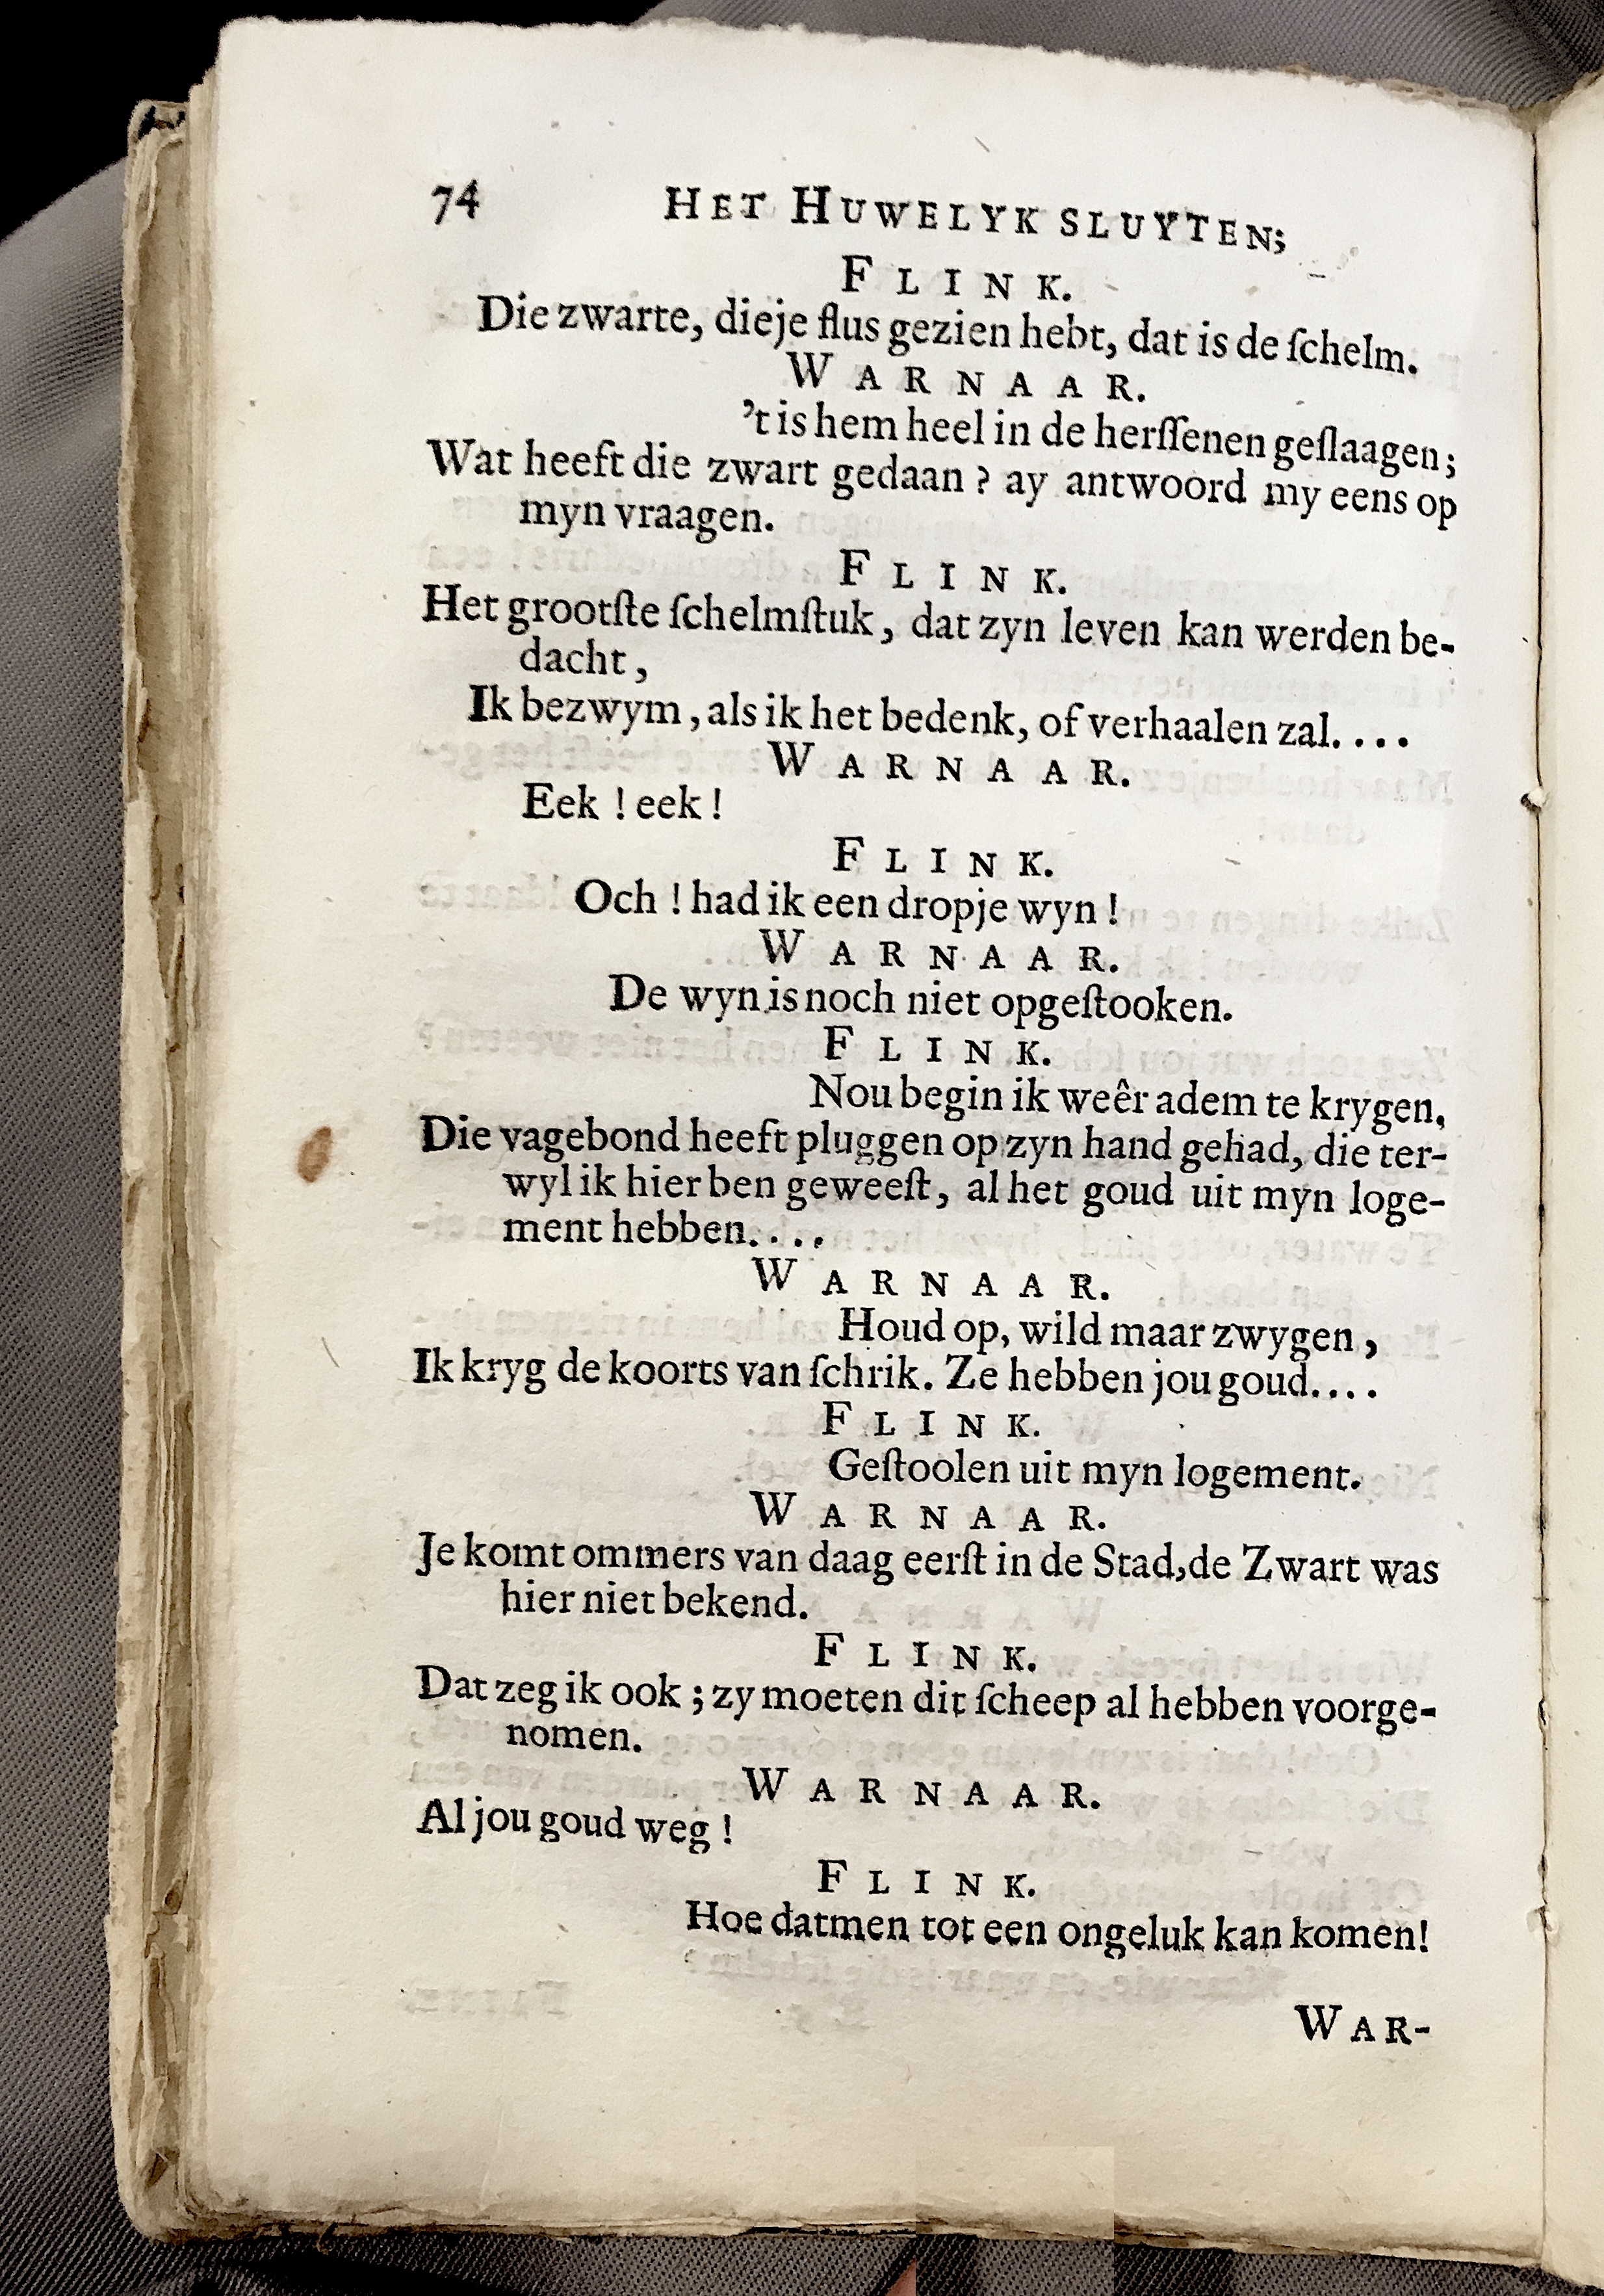 74 HET HUWELYK SLUYTEN;
FLINK.
Die zwarte, dieje flus gezien hebt, dat is de ſchelm.
WARNAAR.
't is hem heel in de herſſenen geſlaagen;
Wat heeft die zwart gedaan? ay antwoord my eens op
myn vraagen.
FLINK.
Het grootſte ſchelmſtuk, dat zyn leven kan werden be-
dacht,
Ik bezwym, als ik het bedenk, of verhaalen zal....
WARNAAR.
Eek! eek!
FLINK.
Och! had ik een dropje wyn!
WARNAAR.
De wyn is noch niet opgeſtooken.
FLINK.
Nou begin ik weêr adem te krygen,
Die vagebond heeft pluggen op zyn hand gehad, die ter-
wyl ik hier ben geweeſt, al het goud uit myn loge-
ment hebben....
WARNAAR.
Houd op, wild maar zwygen,
Ik kryg de koorts van ſchrik. Ze hebben jou goud....
FLINK.
Geſtoolen uit myn logement.
WARNAAR.
Je komt ommers van daag eerſt in de Stad, de Zwart was
hier niet bekend.
FLINK.
Dat zeg ik ook; zy moeten dit ſcheep al hebben voorge-
nomen.
WARNAAR.
Al jou goud weg!
FLINK.
Hoe datmen tot een ongeluk kan komen!
WAR-